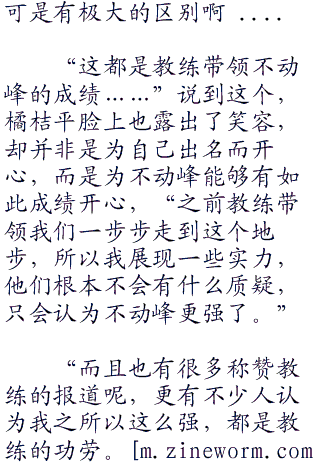 可是有极大的区别啊 ....
“这都是教练带领不动
峰的成绩……”说到这个，
橘桔平脸上也露出了笑容，
却并非是为自己出名而开
心，而是为不动峰能够有如
此成绩开心，“之前教练带
领我们一步步走到这个地
步，所以我展现一些实力，
他们根本不会有什么质疑，
只会认为不动峰更强了。”
“而且也有很多称赞教
练的报道呢，更有不少人认
为我之所以这么强，都是教
练的功劳。[m.zineworm.com